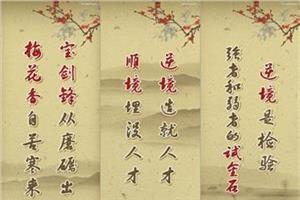 宝剑锋从磨砺出
梅花香自苦寒来
逆境造就人才
順境埋没人才
逆境是检验
強者和弱者的试金石